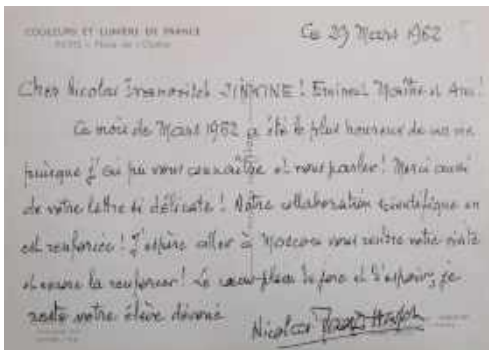 COULEURS ET LUMIÈRE DE FRANCE
Ce 29 Mars 1962
Cher Nicolas Ivanovitch ZINKINE! Eminent Maître et Ami!
Ce mois de Mars 1962 a été le plus heureux de ma vie
puisque j'ai pu vous connaître et vous parler! Merci aussi
de votre lettre si délicate! Notre collaboration scientifique en
est renforcée! J'espère aller à Moscou vous rendre votre visite
et encore la renforcer! Le cœur plein de joie et d'espoir, je
reste votre élève dévoué
Nicolas